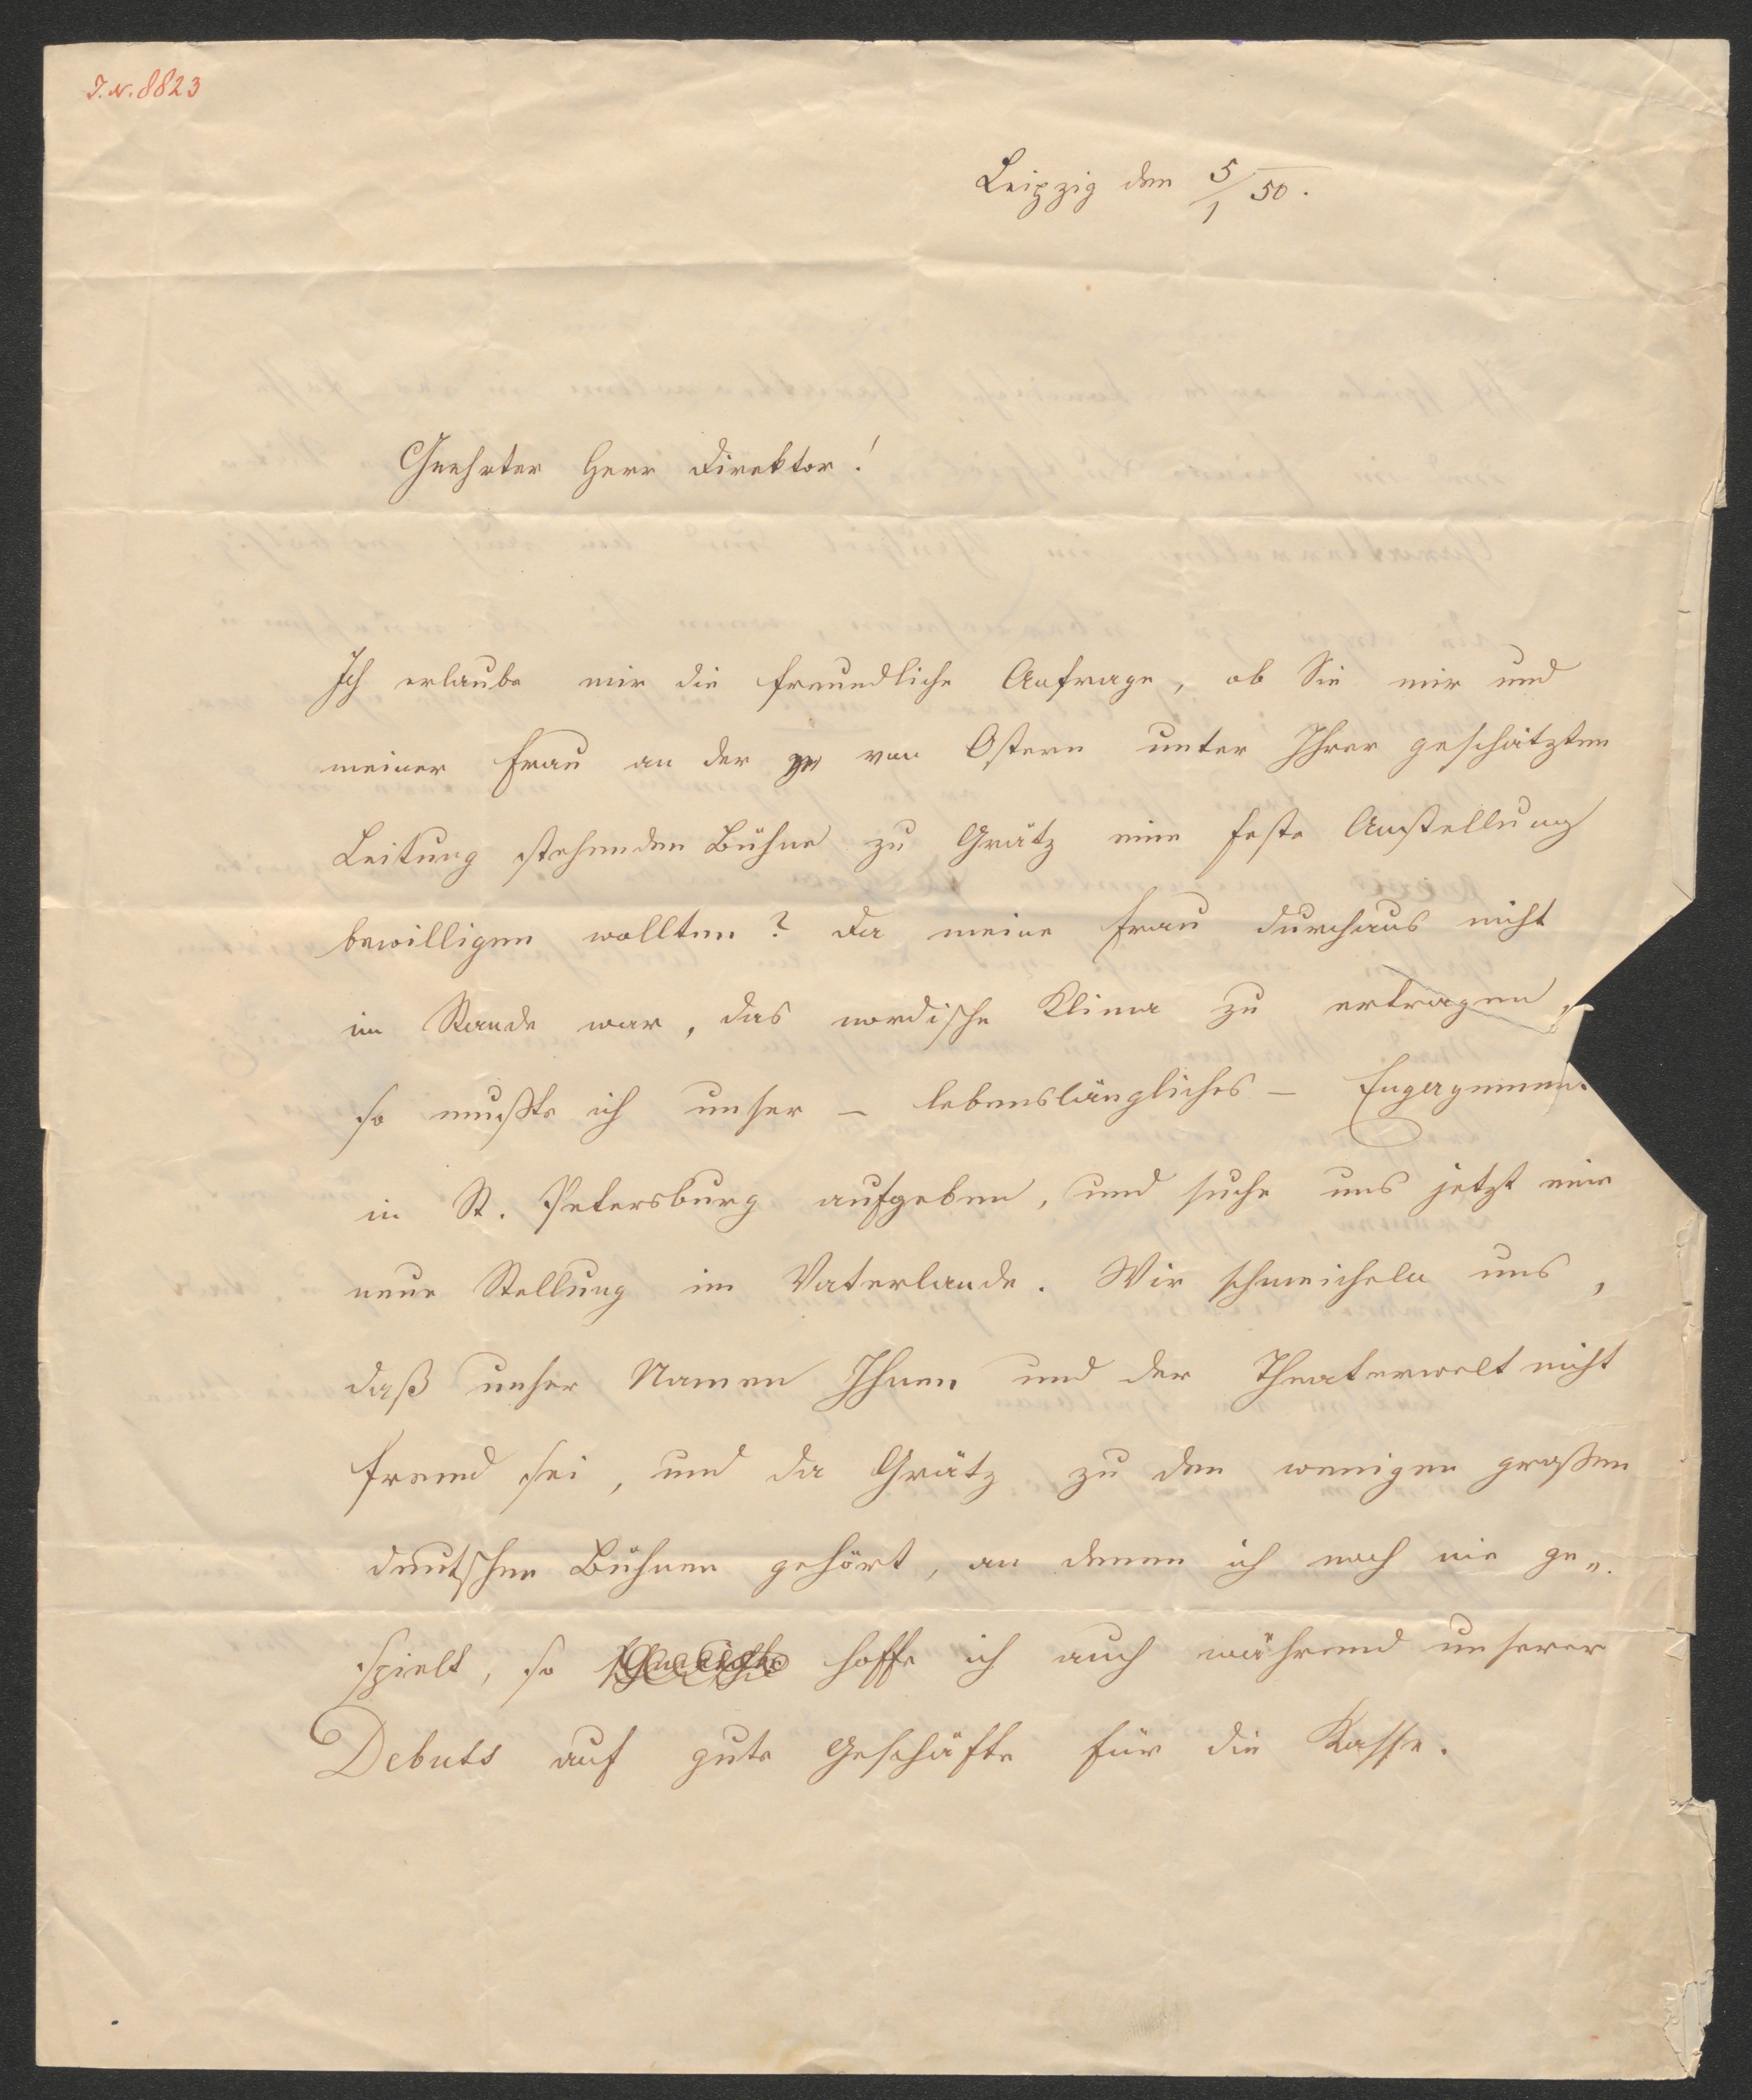 I. N. 8823
Leipzig den 5/1 50.
Geehrter Herr Direktor!
Ich erlaube mir die freundliche Anfrage, ob Sie mir und
meiner Frau an der von Ostern unter Ihrer geschätzten
Leitung stehenden Bühne zu Grätz eine feste Anstellung
bewilligen wollten? Da meine Frau durchaus nicht
im Stande war, das nordische Klima zu ertragen,
so mußte ich unser – lebenslängliches – Engagemen
in St. Petersburg aufgeben, und suche uns jetzt eine
neue Stellung im Vaterlande. Wir schmeicheln uns,
daß unser Namen Ihnen und der Theaterwelt nicht
fremd sei, und da Grätz zu den wenigen großen
deutschen Bühnen gehört, an denen ich noch nie ge„
spielt, so hoffe ich auch während unserer
Debuts auf gute Geschäfte für die Kasse.